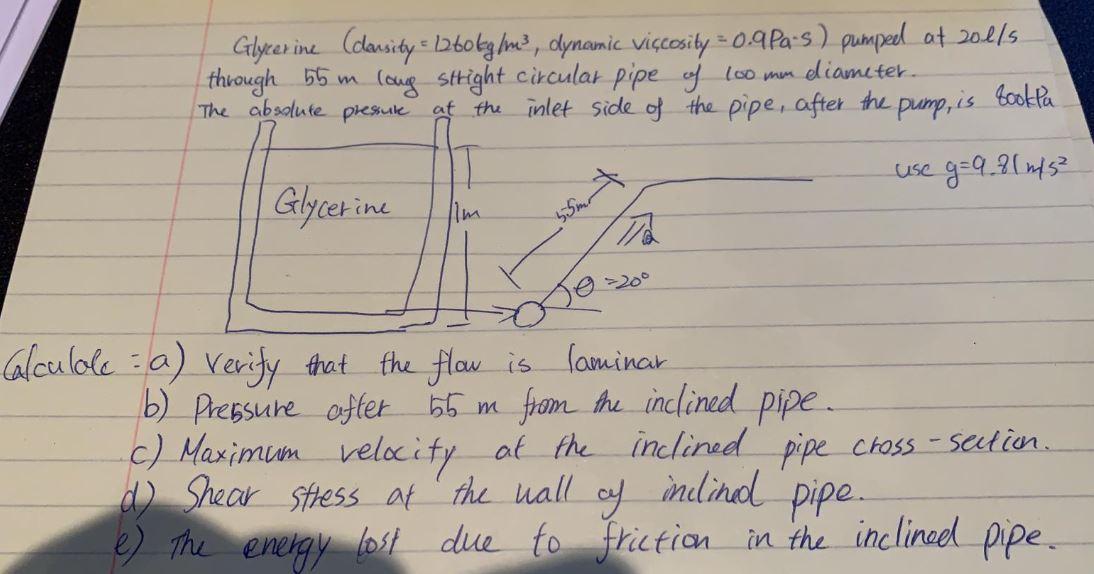 Glycerine (density = 1260kg/m³, dynamic viscosity = 0.9Pa·s) pumped at 20l/s
through 55 m long stright circular pipe of 100 mm diameter.
The absolute presure at the inlet side of the pipe, after the pump, is 800kPa
use g=9.81m/s²
Glycerine
1m
55m
θ=20°
Calculate = a) Verify that the flow is laminar
b) Pressure after 55 m from the inclined pipe.
c) Maximum velocity at the inclined pipe cross-section.
d) Shear stress at the wall of inclined pipe.
e) The energy lost due to friction in the inclined pipe.